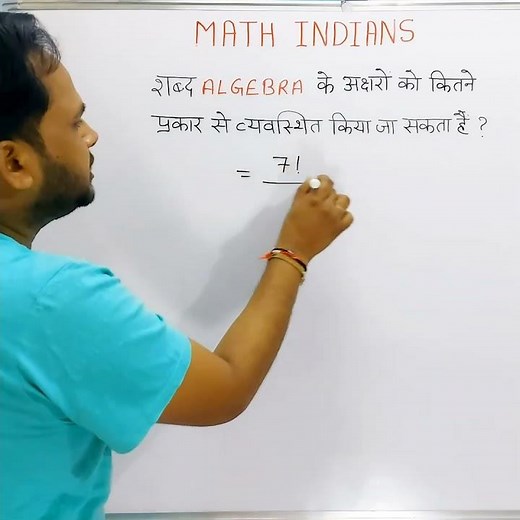 MATH INDIANS
शब्द ALGEBRA के अक्षरो को कितने
प्रकार से व्यवस्थित किया जा सकता हैं ?
= 7!